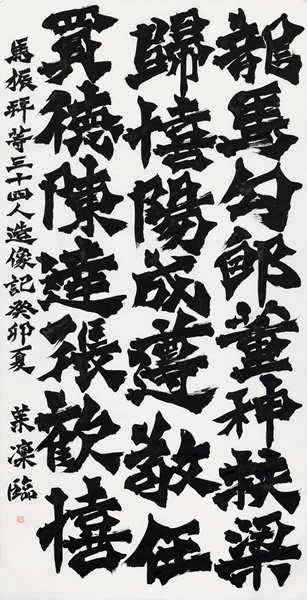 龍馬勾郎董神扶梁
歸憘陽成遵敬任
買德陳達張歡憘
馬振拜等三十四人造像記癸卯夏 葉凜臨